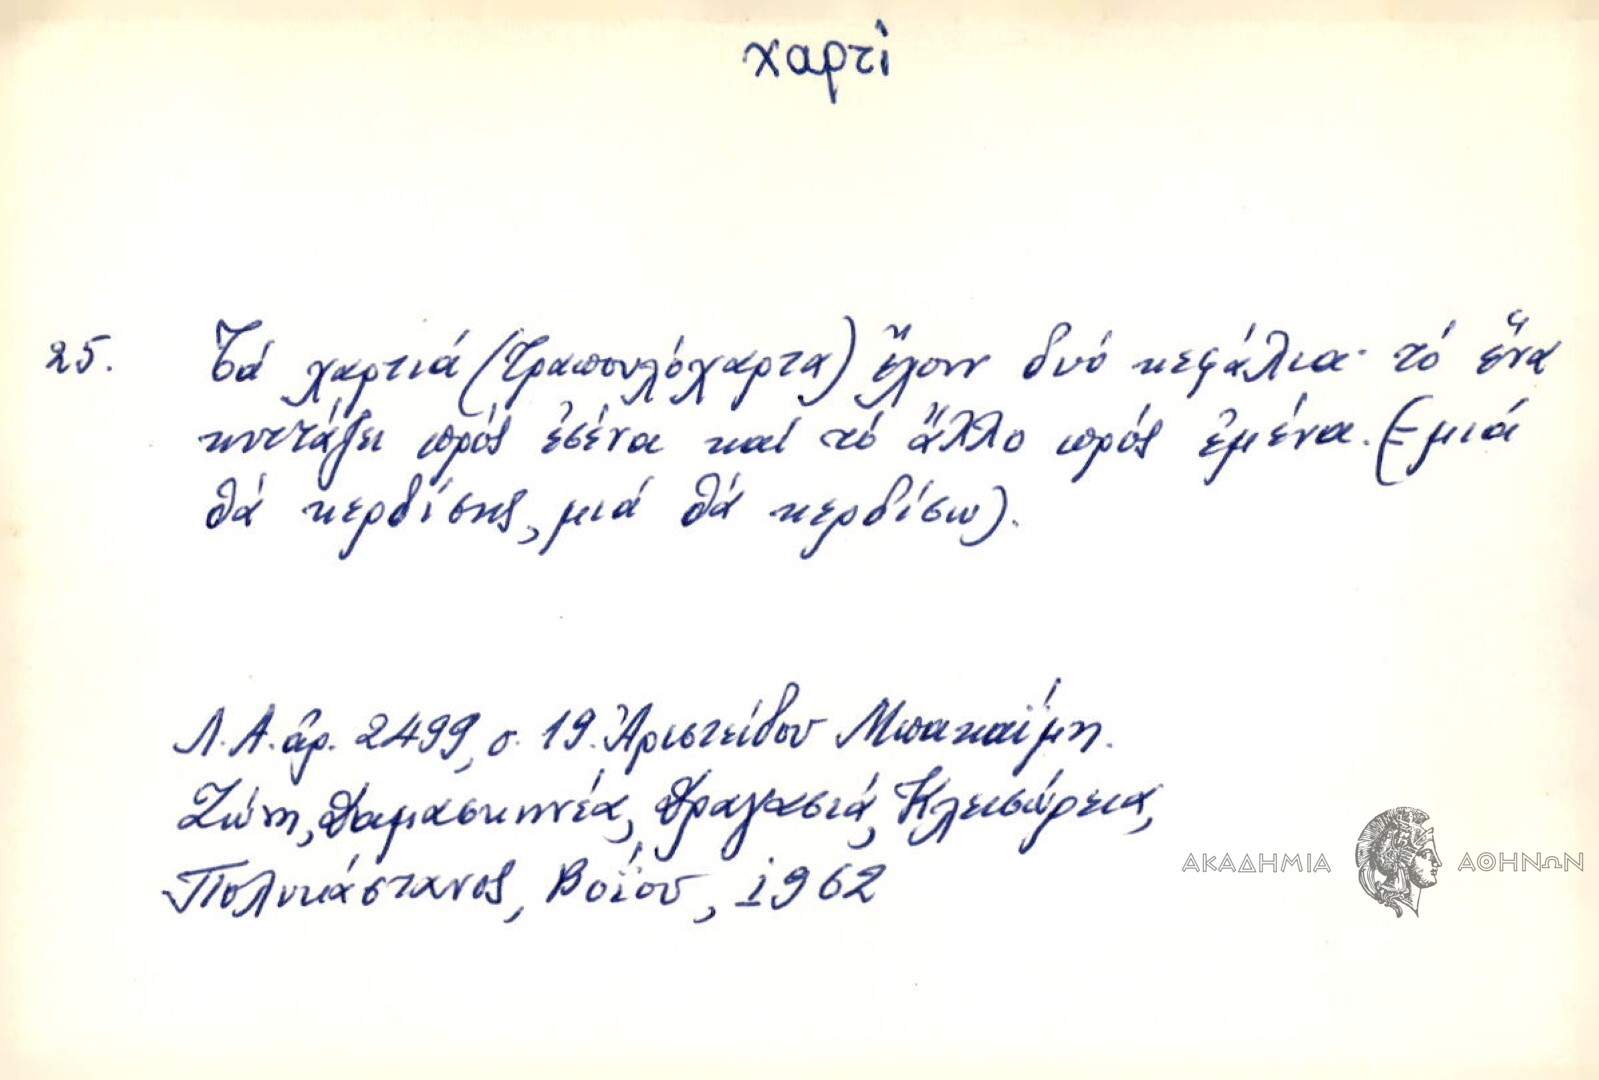 χαρτί
25. Τά χαρτιά (τραπουλόχαρτα) ἔχουν δυό κεφάλια· τό ἕνα
κυττάζει πρός ἐσένα καί τό ἄλλο πρός ἐμένα. (= μιά
θά κερδίσης, μιά θά κερδίσω).
Λ.Α. ἀρ. 2499, σ. 19. Ἀριστείδου Μπακαΐμη.
Ζώνη, Δαμασκηνέα, Δραγασιά, Κλεισώρεια,
Πολυκάστανος, Βοΐου, 1962
ΑΚΑΔΗΜΙΑ ΑΘΗΝΩΝ